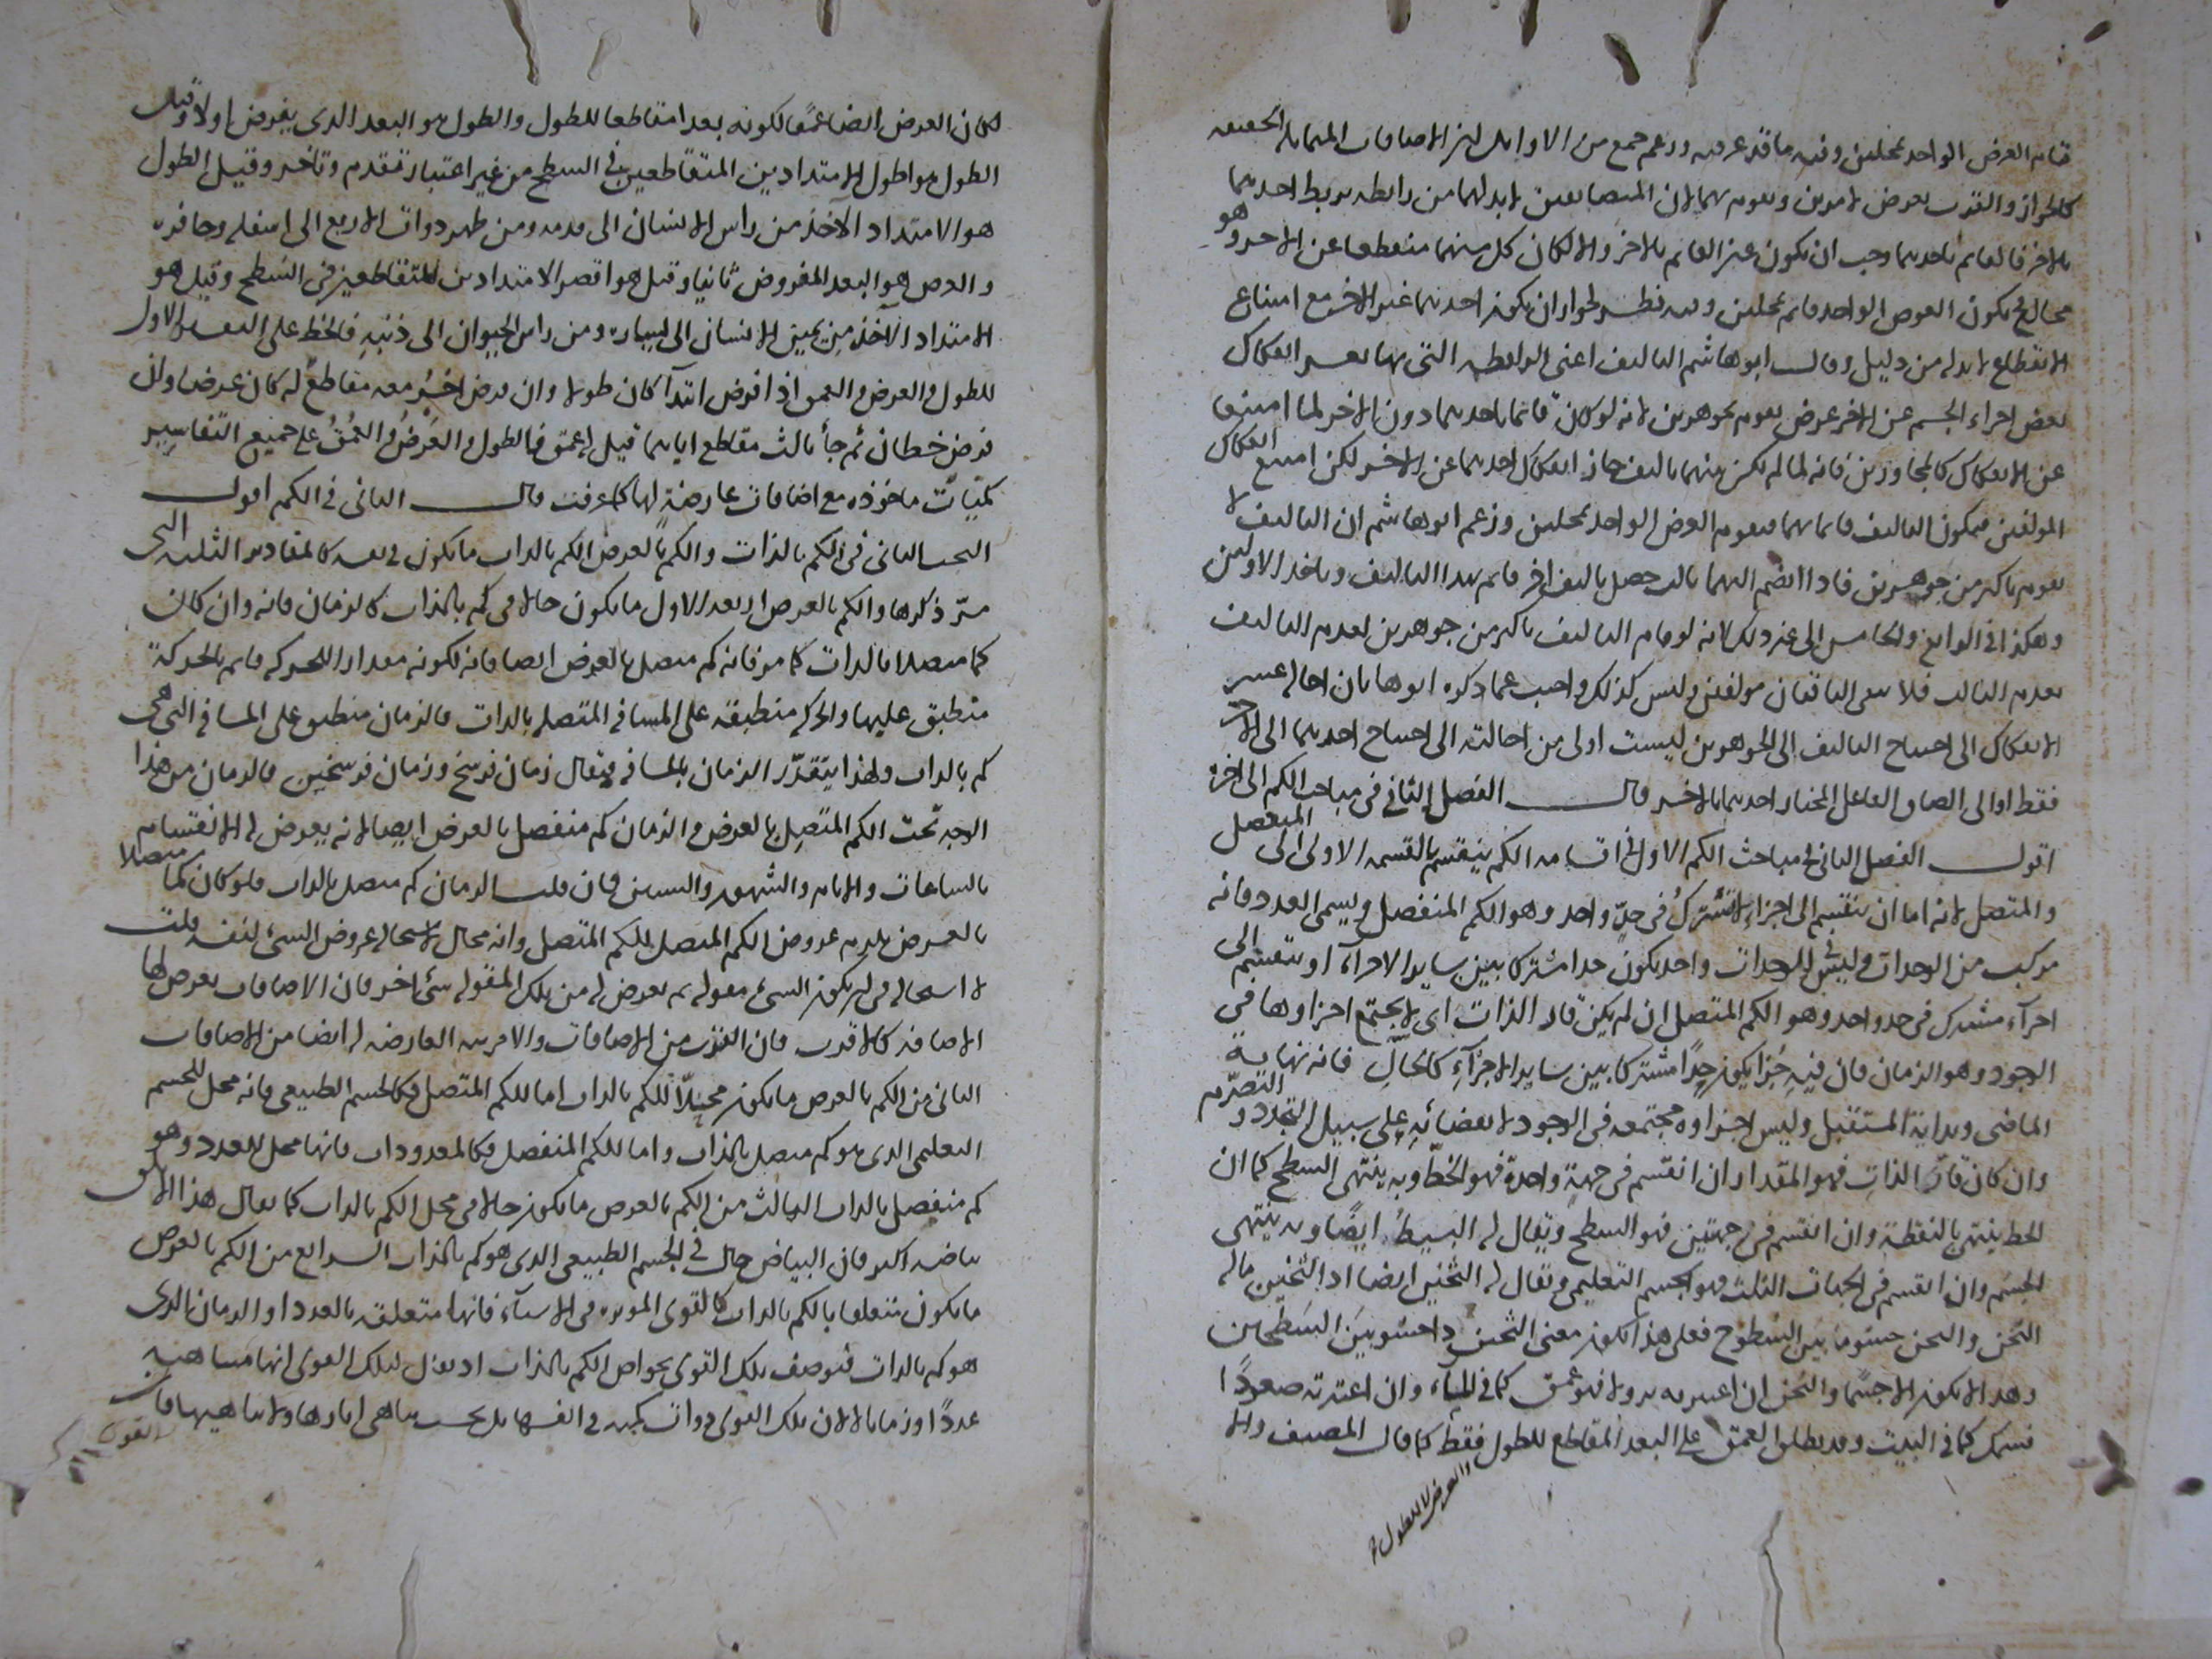 قيام العرض الواحد بمحلين وفيه ما قد عرفته وزعم جمع من الاوايل ان الاضافات المتماثلة الحقيقية
كالجوار والقرب يعرض لامرين ويقوم بهما لان المتضايفين لابد لهما من رابطة يربط احدهما
بالاخر فالقايم باحدهما وجب ان يكون عين القايم بالاخر والا لكان كل منهما منقطعا عن الاخر وهو
محال فيكون العرض الواحد قايم بمحلين وفيه نظر لجواز ان يكون احدهما غير الاخر مع امتناع
الانقطاع لابد له من دليل وقال ابو هاشم التاليف اعنى الرابطة التى بها يعسر انفكاك
بعض اجزاء الجسم عن الاخر عرض يقوم بجوهرين لانه لو كان قائما باحدهما دون الاخر لما امتنعا
عن الانفكاك كالمجاورين فانه لما لم يكن بينهما تاليف جاز انفكاك احدهما عن الاخر لكن امتنع انفكاك
المولفين فيكون التاليف قايما بهما فيقوم العرض الواحد بمحلين وزعم ابو هاشم ان التاليف لا
يقوم باكثر من جوهرين فاذا انضم اليهما ثالث حصل تاليف اخر قايم بهذا التاليف وباحد الاولين
وهكذا فى الرابع والخامس الى غير ذلك لانه لو قام التاليف باكثر من جوهرين لعدم التاليف
بعدم الثالث فلا يبقى الباقيان مولفين وليس كذلك واجيب عما ذكره ابو ها بان احالة عسر
الانفكاك الى احتياج التاليف الى الجوهرين ليست اولى من احالته الى احتياج احدهما الى الاخر
فقط او الى الصاق الفاعل المختار احدهما بالاخر قال الفصل الثانى فى مباحث الكم الى اخره
اقول الفصل الثانى فى مباحث الكم الاول فى اقسامه الكم ينقسم بالقسمة الاولى الى المنفصل
والمتصل لانه اما ان ينقسم الى اجزاء لا تشترك فى حد واحد وهو الكم المنفصل ويسمى العدد فانه
مركب من الوحدات وليس للوحدات واحد يكون حدا مشتركا بين ساير الاجزاء او ينقسم الى
اجزآء مشترك فى حد واحد وهو الكم المتصل ان لم يكن قار الذات اى لا يجتمع اجزاوها فى
الوجود وهو الزمان فان فيه جُزا يكون حدًا مشتركا بين ساير الاجزآءِ كالحالِ فانه نهاية
الماضى وبداية المستقبل وليس اجزاوه مجتمعه فى الوجود لانقضائه على سبيل التجدد و التصرم
وان كان قارّ الذاتِ فهو المقدار ان انقسم فى جهةٍ واحدة فهو الخطّ وبه ينتهى السطح كما ان
الخط ينتهى بالنقطة وان انقسم فى جهتين فهو السطح ويقال له البسيطُ ايضًا وبه ينتهى
الجسم وان انقسم فى الجهات الثلث فهو الجسم التعليمى ويقال له الثخين ايضا اذ الثخين ما له
الثخن والثخن حشو ما بين السطوح فعلى هذا يكون معنى الثخين ذا حشو بين السَطحين
وهذا لا يكون الا جسما والثخن ان اعتبر به نزولا فهو عمق كما فى المآء وان اعتبرته صعودًا
فسمك كما فى البيت وقد يطلق العمق على البعد المقاطع للطول فقط كما قال المصنف والا
والعرض لا للطول
لكان العرض ايضا عمقًا لكونه بعدا مقاطعا للطول والطول هو البعد الذى يفرض اولا وقيل
الطول هو اطول الامتدادين المتقاطعين فى السطح من غير اعتبار تقدم وتاخر وقيل الطول
هو الامتداد الآخذ من راس الانسان الى قدمه ومن ظهر ذوات الاربع الى اسفله وحافره
والعرض هو البعد المفروض ثانيا وقيل هو اقصر الامتدادين المتقاطعين فى السطح وقيل هو
الامتداد الآخذ من يمين الانسان الى يساره ومن راس الحيوان الى ذنبهِ فالخط على التفسير الاول
للطول والعرض والعمق اذا فرض ابتدآ كان طولا وان فرض اخرُ معه مقاطعٌ له كان عرضا وان
فرض خطان ثم جآ ثالث مقاطع اياهما قيل له عمق فالطول والعَرضُ والعُمقُ على جميع التفاسير
كمّيات ماخوذه مع اضافات عارضةٍ لها كما عرفت قال الثانى فى الكم اقول
البحث الثانى فى الكم بالذات والكم بالعرض الكم بالذات ما يكون فى نفسه كالمقادير الثلثة التى
مرّ ذكرها والكم بالعرض اربعة الاول ما يكون حالا فى كم بالذات كالزمان فانه وان كان
كما متصلا بالذات كما مر فانه كم متصل بالعرض ايضا فانه لكونه مقدار الحركه قايم بالحركة
منطبق عليها والحركة منطبقه على المسافة المتصله بالذات فالزمان منطبق على المسافة التى هى
كم بالذات ولهذا يتقدّر الزمان بالمسافة فيقال زمان فرسخ وزمان فرسخين فالزمان من هذا
الوجه تحت الكم المتصل بالعرض والزمان كم منفصل بالعرض ايضا لانه يعرض له الانقسام
بالساعات والايام والشهور والسنين فان قلت الزمان كم متصل بالذات فلو كان كما متصلا
بالعرض يلزم عروض الكم المتصل للكم المتصل وانه محال لاستحالة عروض الشئ لنفسه قلت
لا استحالة فى ان يكون الشئ مقولة ثم يعرض له من تلك المقوله شئ اخر فان الاضافات يعرض لها
الاضافة كالاقرب فان القرب من الاضافات والاقربية العارضه له ايضا من الاضافات
الثانى من الكم بالعرض ما يكون محلاّ للكم بالذات اما للكم المتصل فكالجسم الطبيعى فانه محل للجسم
التعليمى الذى هو كم متصل بالذات واما للكم المنفصل فكالمعدودات فانها محل للعدد وهو
كم منفصل بالذات الثالث من الكم بالعرض ما يكون حالا فى محل الكم بالذات كما يقال هذا الابيض
بياضه اكثر فان البياض حال فى الجسم الطبيعى الذى هو كم بالذات الرابع من الكم بالعرض
ما يكون متعلقا بالكم بالذات كالقوى الموثرة فى الاشياء فانها متعلقه بالعدد او الزمان الذى
هو كم بالذات فتوصف تلك القوى بخواص الكم بالذات اذ يقال لتلك القوى انها متناهية
عددًا او زمانا لا لان تلك القوى ذوات كمية فى انفسها بل بحسب تناهى اثارها ولا تناهيها فان
القوى